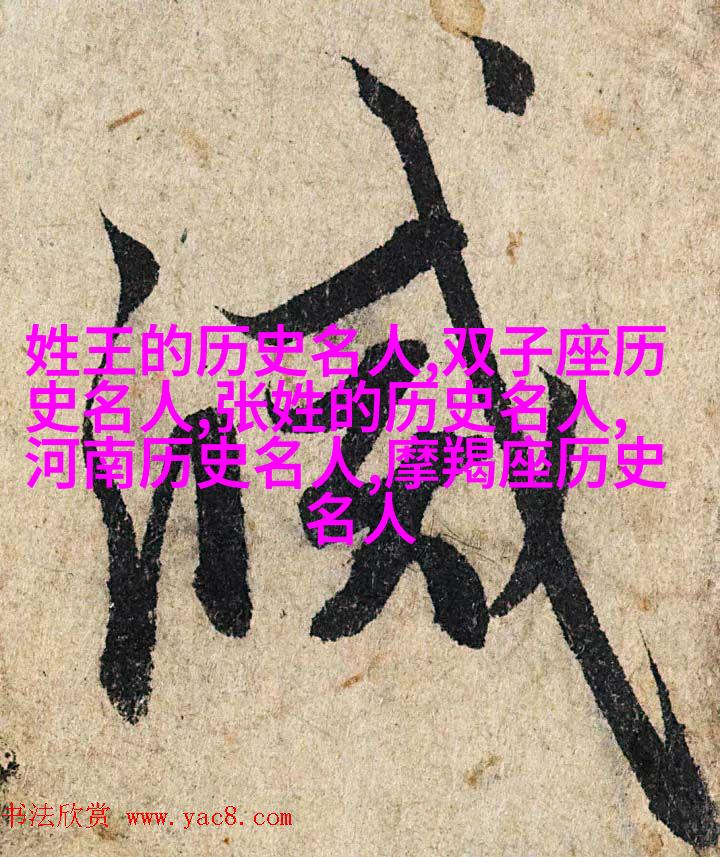 滅
姓王的历史名人,双子座历
史名人,张姓的历史名人,
河南历史名人,摩羯座历史
名人
书法欣赏 www.yac8.com